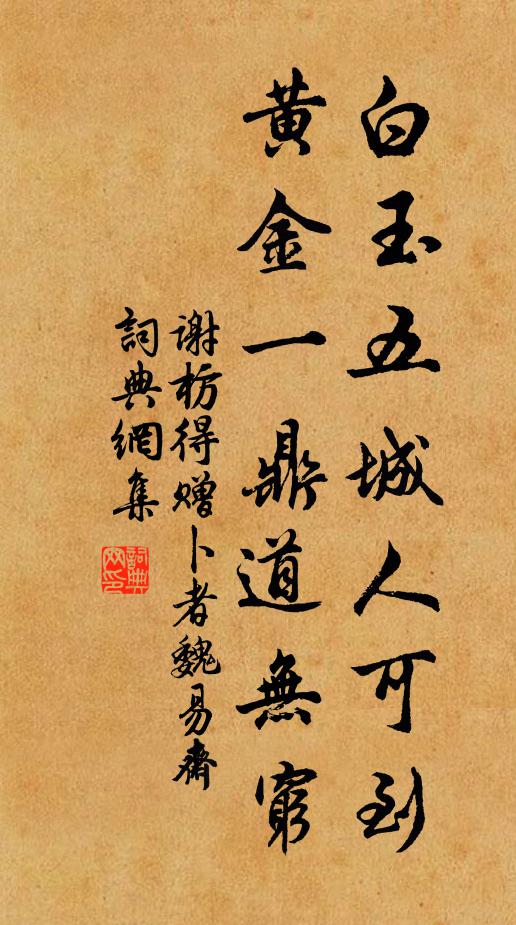 白玉五城人可到
黃金一鼎道無窮
谢枋得赠卜者魏易齋
詞典網集
詞典
网印